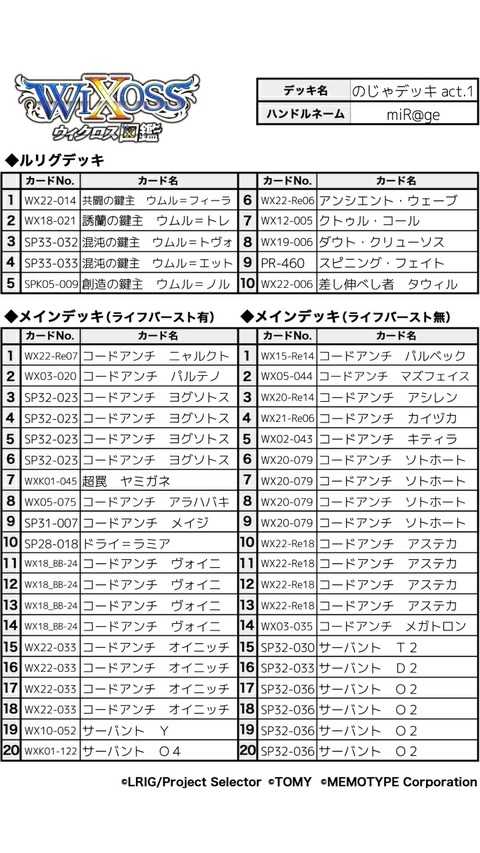 WIXOSS
ウィクロス図鑑
デッキ名 のじゃデッキ act.1
ハンドルネーム miR@ge
◆ルリグデッキ
カードNo. カード名 カードNo. カード名
1 WX22-014 共闘の鍵主 ウムル＝フィーラ 6 WX22-Re06 アンシエント・ウェーブ
2 WX18-021 誘蘭の鍵主 ウムル＝トレ 7 WX12-005 クトゥル・コール
3 SP33-032 混沌の鍵主 ウムル＝トヴォ 8 WX19-006 ダウト・クリューソス
4 SP33-033 混沌の鍵主 ウムル＝エット 9 PR-460 スピニング・フェイト
5 SPK05-009 創造の鍵主 ウムル＝ノル 10 WX22-006 差し伸べし者 タウィル
◆メインデッキ（ライフバースト有） ◆メインデッキ（ライフバースト無）
カードNo. カード名 カードNo. カード名
1 WX22-Re07 コードアンチ ニャルクト 1 WX15-Re14 コードアンチ パルベック
2 WX03-020 コードアンチ パルテノ 2 WX05-044 コードアンチ マズフェイス
3 SP32-023 コードアンチ ヨグソトス 3 WX20-Re14 コードアンチ アシレン
4 SP32-023 コードアンチ ヨグソトス 4 WX21-Re06 コードアンチ カイヅカ
5 SP32-023 コードアンチ ヨグソトス 5 WX02-043 コードアンチ キティラ
6 SP32-023 コードアンチ ヨグソトス 6 WX20-079 コードアンチ ソトホート
7 WXK01-045 超罠 ヤミガネ 7 WX20-079 コードアンチ ソトホート
8 WX05-075 コードアンチ アラハバキ 8 WX20-079 コードアンチ ソトホート
9 SP31-007 コードアンチ メイジ 9 WX20-079 コードアンチ ソトホート
10 SP28-018 ドライ＝ラミア 10 WX22-Re18 コードアンチ アステカ
11 WX18_BB-24 コードアンチ ヴォイニ 11 WX22-Re18 コードアンチ アステカ
12 WX18_BB-24 コードアンチ ヴォイニ 12 WX22-Re18 コードアンチ アステカ
13 WX18_BB-24 コードアンチ ヴォイニ 13 WX22-Re18 コードアンチ アステカ
14 WX18_BB-24 コードアンチ ヴォイニ 14 WX03-035 コードアンチ メガトロン
15 WX22-033 コードアンチ オイニッチ 15 SP32-030 サーバント Ｔ２
16 WX22-033 コードアンチ オイニッチ 16 SP32-033 サーバント Ｄ２
17 WX22-033 コードアンチ オイニッチ 17 SP32-036 サーバント Ｏ２
18 WX22-033 コードアンチ オイニッチ 18 SP32-036 サーバント Ｏ２
19 WX10-052 サーバント Ｙ 19 SP32-036 サーバント Ｏ２
20 WXK01-122 サーバント Ｏ４ 20 SP32-036 サーバント Ｏ２
©LRIG/Project Selector ©TOMY ©MEMOTYPE Corporation